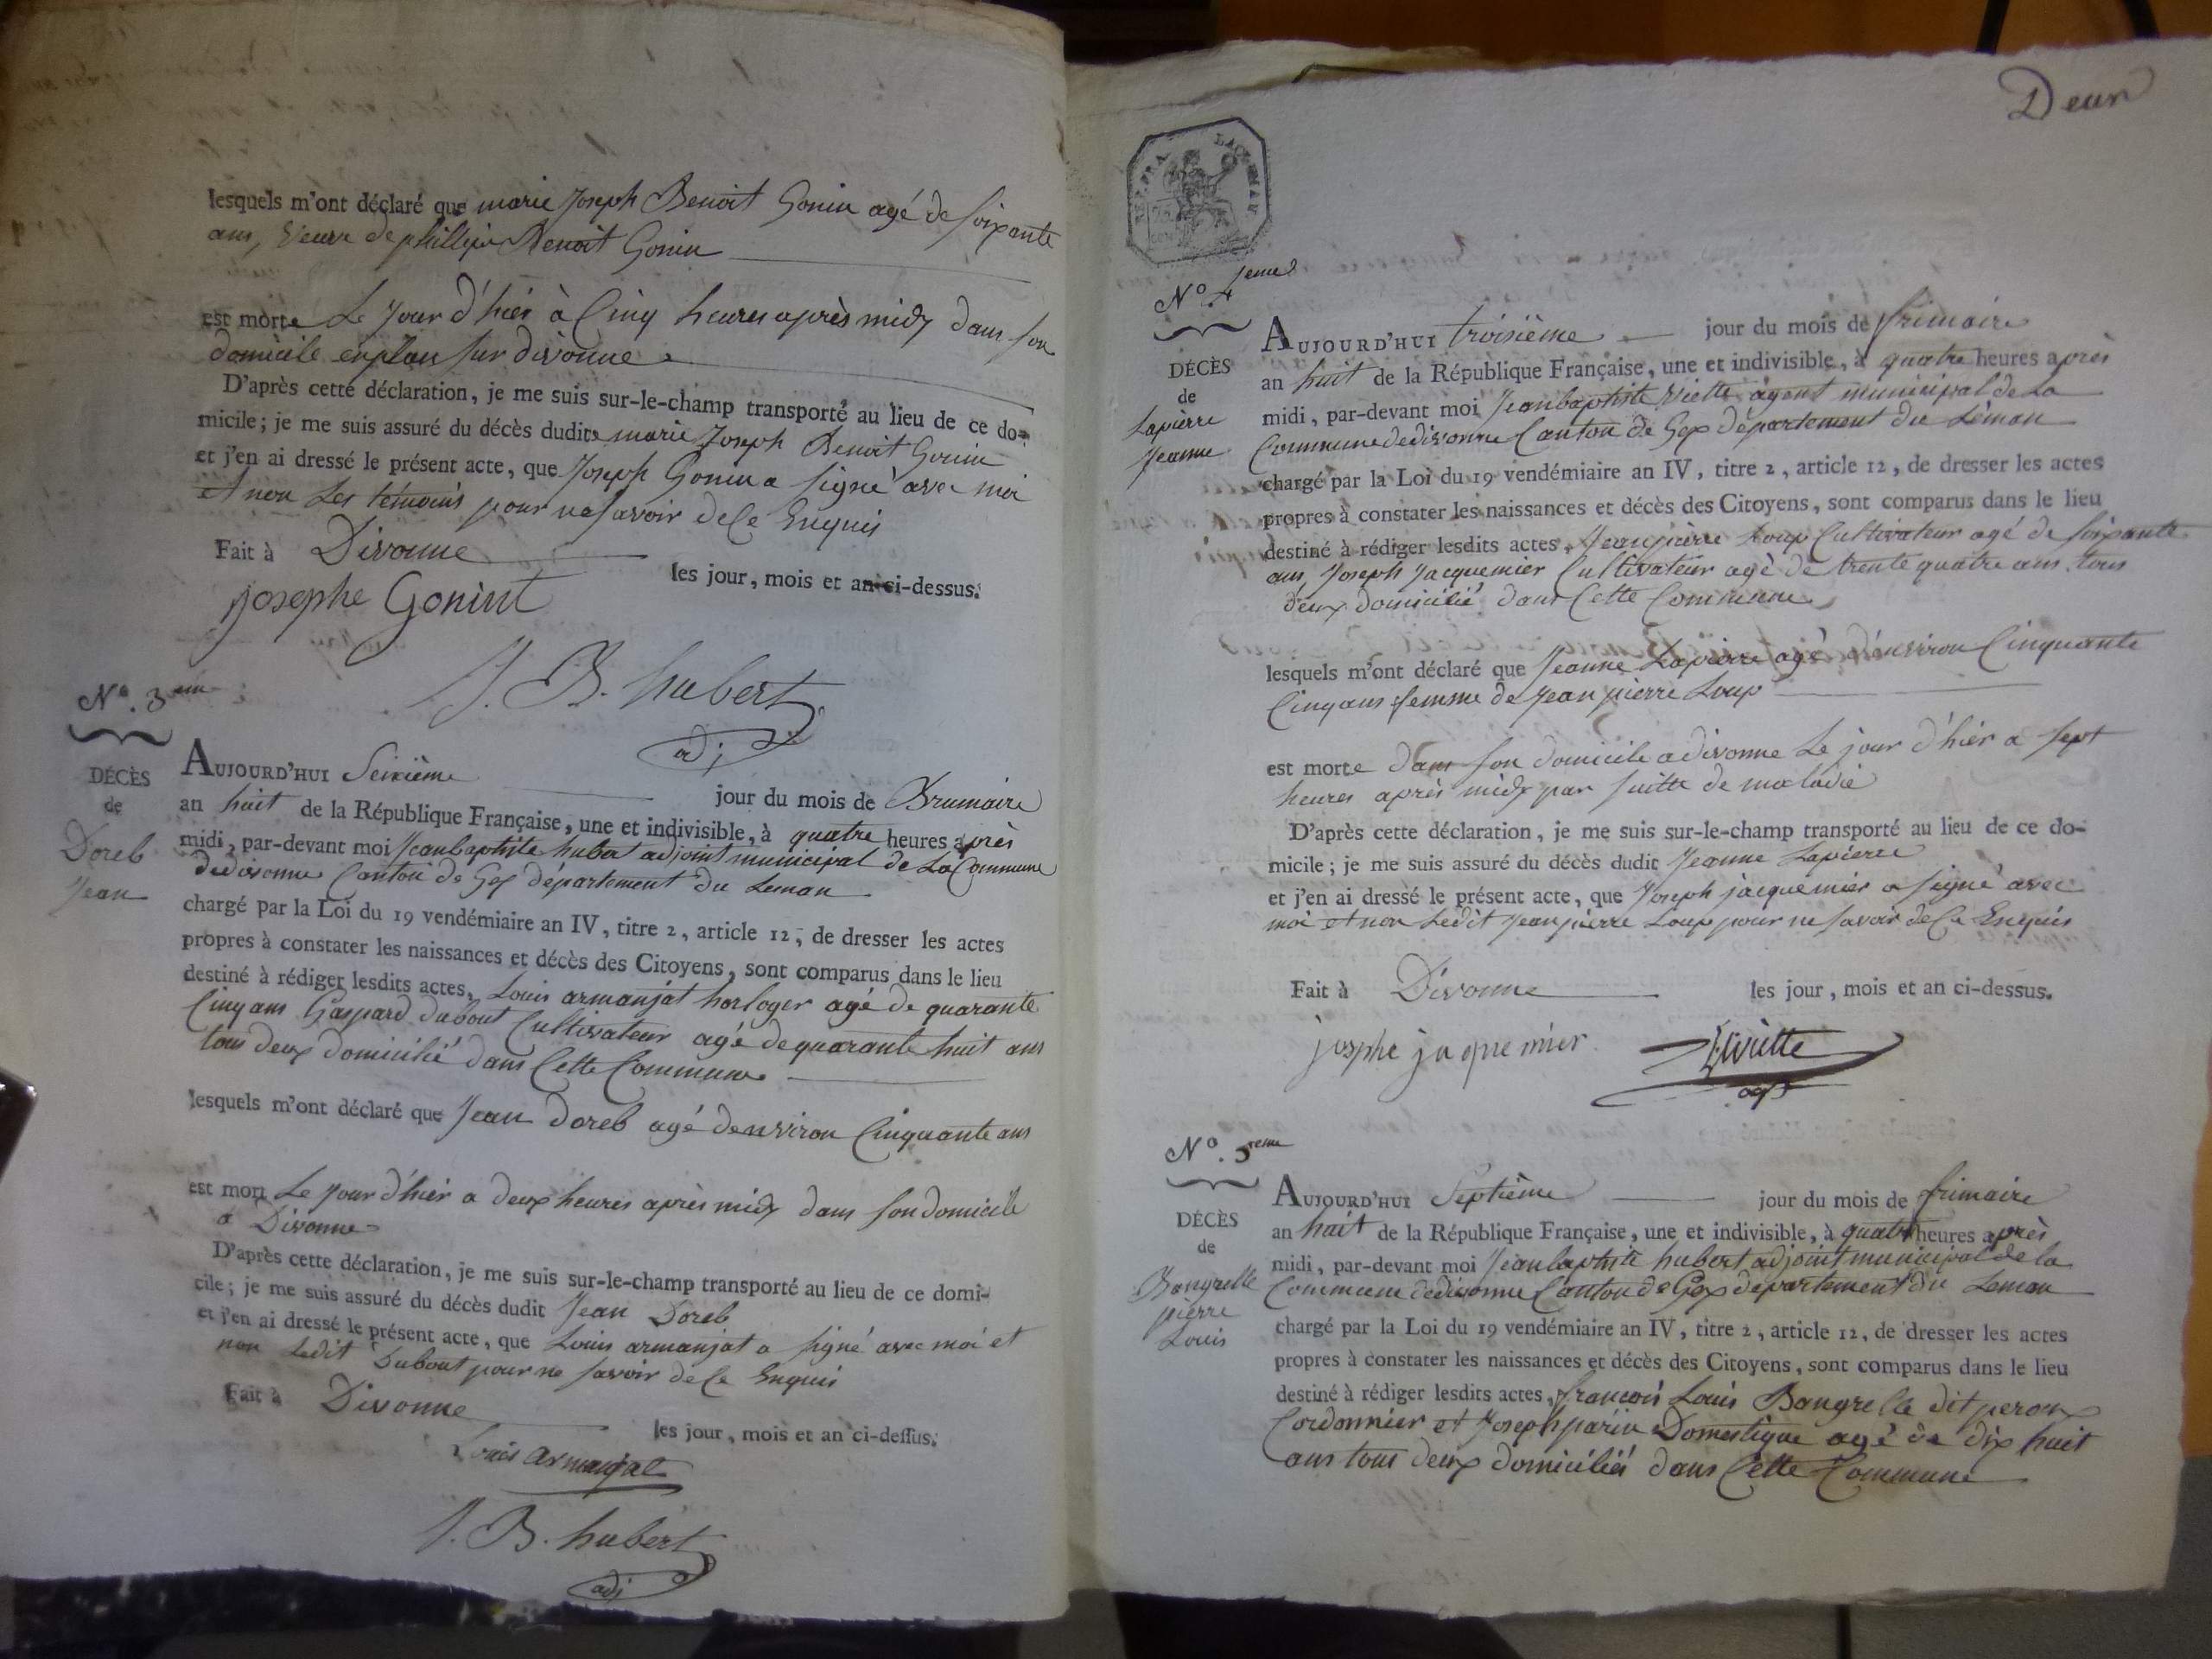 lesquels m'ont déclaré que marie Joseph Benoit Gonin agé de soixante
ans, veuve de phillipe Benoit Gonin
est morte Le jour d'hiér à Cinq heures après midy dans son
domicile en plan sur divonne
D'après cette déclaration, je me suis sur-le-champ transporté au lieu de ce do-
micile; je me suis assuré du décès dudite marie Joseph Benoit Gonin
et j'en ai dressé le présent acte, que Joseph Gonin a signé avec moi
et non Les témoins pour ne savoir de Ce Enquis
Fait à Divonne
les jour, mois et an ci-dessus.
josephe Gonint
J. B. hubert
adj
N°. 3eme
DÉCÈS
de
Doreb
Jean
AUJOURD'HUI Seizième jour du mois de Brumaire
an huit de la République Française, une et indivisible, à quatre heures après
midi, par-devant moi Jeanbaptiste hubert adjoint municipal de La Commune
de divonne Canton de Gex département du Leman
chargé par la Loi du 19 vendémiaire an IV, titre 2, article 12, de dresser les actes
propres à constater les naissances et décès des Citoyens, sont comparus dans le lieu
destiné à rédiger lesdits actes, Louis armanjat horloger agé de quarante
Cinq ans Gaspard dubout Cultivateur agé de quarante huit ans
tous deux domicilié dans Cette Commune
lesquels m'ont déclaré que Jean doreb agé denviron Cinquante ans
est mort Le jour d'hiér a deux heures après midy dans son domicile
a Divonne
D'après cette déclaration, je me suis sur-le-champ transporté au lieu de ce domi-
cile; je me suis assuré du décès dudit Jean Doreb
et j'en ai dressé le présent acte, que Louis armanjat a signé avec moi et
non Ledit Dubout pour ne savoir de Ce Enquis
Fait à Divonne
les jour, mois et an ci-dessus.
Louis armanjat
J. B. hubert
adj
Deux
N°. 4eme
DÉCÈS
de
Lapierre
Jeanne
AUJOURD'HUI troisième jour du mois de frimaire
an huit de la République Française, une et indivisible, à quatre heures après
midi, par-devant moi Jeanbaptiste Viette agent municipal de La
Commune de divonne Canton de Gex département du Léman
chargé par la Loi du 19 vendémiaire an IV, titre 2, article 12, de dresser les actes
propres à constater les naissances et décès des Citoyens, sont comparus dans le lieu
destiné à rédiger lesdits actes, Jean pierre Loup Cultivateur agé de soixante
ans, Joseph Jacquemier Cultivateur agé de trente quatre ans tous
deux domicilié dans Cette Commune
lesquels m'ont déclaré que Jeanne Lapierre agé d'environ Cinquante
Cinq ans femme de Jean pierre Loup
est morte dans son domicile a divonne Le jour d'hiér a sept
heures après midy par suitte de maladie
D'après cette déclaration, je me suis sur-le-champ transporté au lieu de ce do-
micile; je me suis assuré du décès dudit Jeanne Lapierre
et j'en ai dressé le présent acte, que Joseph jacquemier a signé avec
moi et non Ledit Jean pierre Loup pour ne savoir de Ce Enquis
Fait à Divonne les jour, mois et an ci-dessus.
josphe jaquemier
N°. 5eme
DÉCÈS
de
Bangrelle
pierre
Louis
AUJOURD'HUI Septième jour du mois de frimaire
an huit de la République Française, une et indivisible, à quatre heures après
midi, par-devant moi Jeanbaptiste hubert adjoint municipal de la
Commune de divonne Canton de Gex département du Leman
chargé par la Loi du 19 vendémiaire an IV, titre 2, article 12, de dresser les actes
propres à constater les naissances et décès des Citoyens, sont comparus dans le lieu
destiné à rédiger lesdits actes, francois Louis Bangrelle dit
Cordonnier et Joseph Domestique agé de dix huit
ans tous deux domiciliés dans Cette Commune